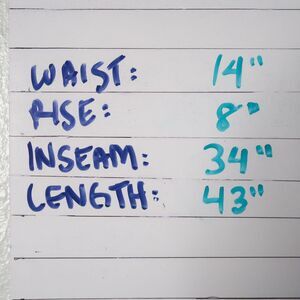 WAIST: 14"
RISE: 8"
INSEAM: 34"
LENGTH: 43"